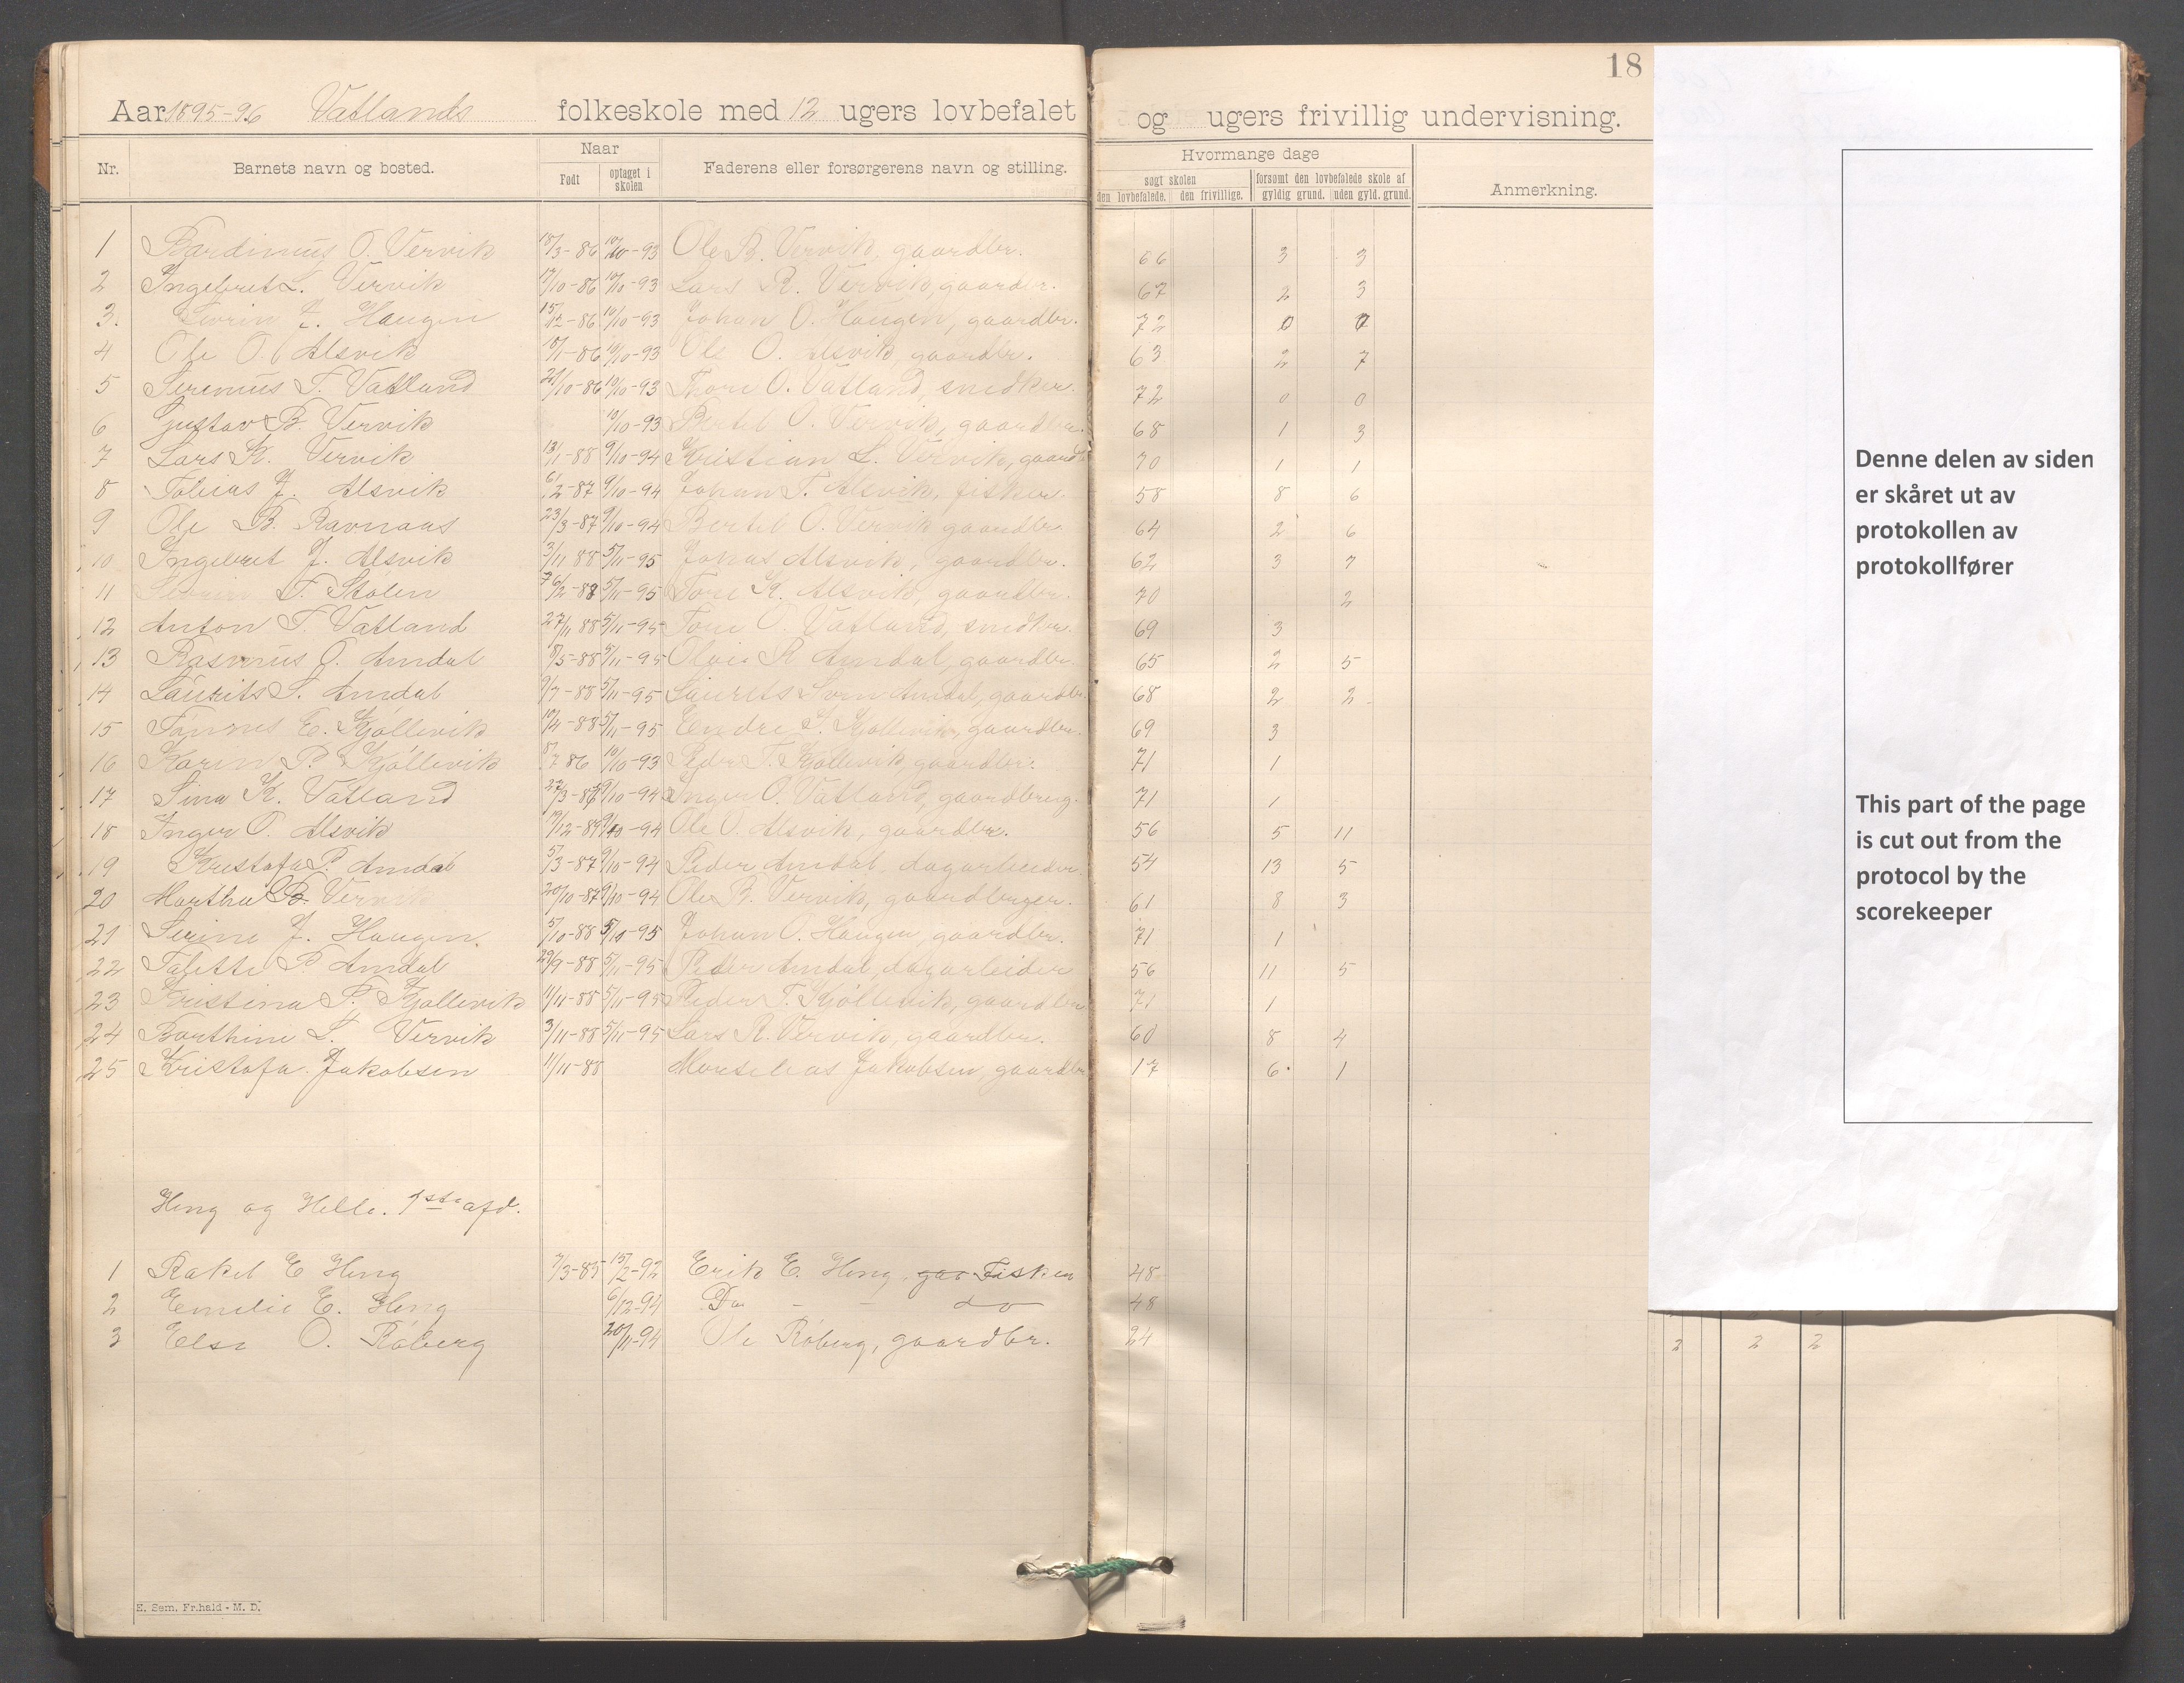 18
Aar 1895-96 Vatlands folkeskole med 12 ugers lovbefalet og ugers frivillig undervisning.
Nr. Barnets navn og bosted. Naar Født optaget i skolen Faderens eller forsørgerens navn og stilling. Hvormange dage søgt skolen den lovbefalede. den frivillige. forsømt den lovbefalede skole af gyldig grund. uden gyld. grund. Anmerkning.
1 Bardinius O. Vervik 15/3-86 10/10-93 Ole B. Vervik, gaardbr. 66 3 3
2 Ingebret L. Vervik 17/10-86 10/10-93 Lars R. Vervik, gaardbr. 67 2 3
3. J. Haugen 15/12-86 10/10-93 Johan O. Haugen, gaardbr. 72 0 0
4 Ole O. Alsvik 10/1-86 10/10-93 Ole O. Alsvik, gaardbr. 63 2 7
5 Serenius T. Vatland 21/10-86 10/10-93 Tore O. Vatland, snedker. 72 0 0
6 Gustav B. Vervik 10/10-93 Bertel O. Vervik, gaardbr. 68 1 3
7 Lars K. Vervik 13/1-88 9/10-94 Kristian L. Vervik, gaardb 70 1 1
8 Tobias J. Alsvik 6/2-87 9/10-94 Johan T. Alsvik, fisker. 58 8 6
9 Ole B. Ravnaas 23/3-87 9/10-94 Bertel O. Vervik gaardbr. 64 2 6
10 Ingebret J. Alsvik 3/11 88 5/11-95 Jonas Alsvik, gaardbr. 62 3 7
11 T. Stølen 6/2-88 5/11-95 Tore K. Alsvik, gaardbr. 70 2
12 Anton T. Vatland 27/11 88 5/11-95 Tore O. Vatland, snedker. 69 3
13 Rasmus O. Amdal 8/5-88 5/11-95 R. Amdal, gaardbr. 65 2 5
14 Laurits S. Amdal 9/7-88 5/11-95 Amdal, gaardbr. 68 2 2
15 E. Kjøllevik 10/4-88 5/11-95 Endre S. Kjøllevik, gaardbr. 69 3
16 Karin P. Kjøllevik 8/7 86 10/10-93 Peder T. Kjøllevik, gaardbr. 71 1
17 Sina K. Vatland 9/10-94 Inger O. Vatland, gaardbrug. 71 1
18 Inger O. Alsvik 9/10-94 Ole O. Alsvik, gaardbr. 56 5 11
19 Kristofa P. Amdal 5/3-87 9/10-94 Peder Amdal, dagarbeider. 54 13 5
20 Martha B. Vervik 20/10-87 9/10-94 Ole B. Vervik, gaardbruger. 61 8 3
21 Serine J. Haugen. 5/10-88 5/10-95 Johan O. Haugen, gaardbr. 71 1
22 Tabette P. Amdal 29/9-88 5/11-95 Peder Amdal, dagarbeider 56 11 5
23 Kristina P. Kjøllevik 1/11-88 5/11-95 Peder T. Kjøllevik, gaardbr. 71 1
24 Barthine L. Vervik 3/11-88 5/11-95 Lars R. Vervik, gaardbr. 60 8 4
25 Kristofa Jakobsen 1/11-88 Jakobsen, gaardbr 17 6 1
Heng og Helle. 1ste afd.
1 Rakel E Heng 7/3-85 15/2-92 Erik E. Heng, gar Fisker 48
2 Emelie E. Heng 6/12-94 Do - - do 48
3 Else O. Røberg 20/11-94 Ole Røberg, gaardbr. 24
2 2 2
E. Sem, Fr.hald - M. D.
Denne delen av siden
er skåret ut av
protokollen av
protokollfører
This part of the page
is cut out from the
protocol by the
scorekeeper